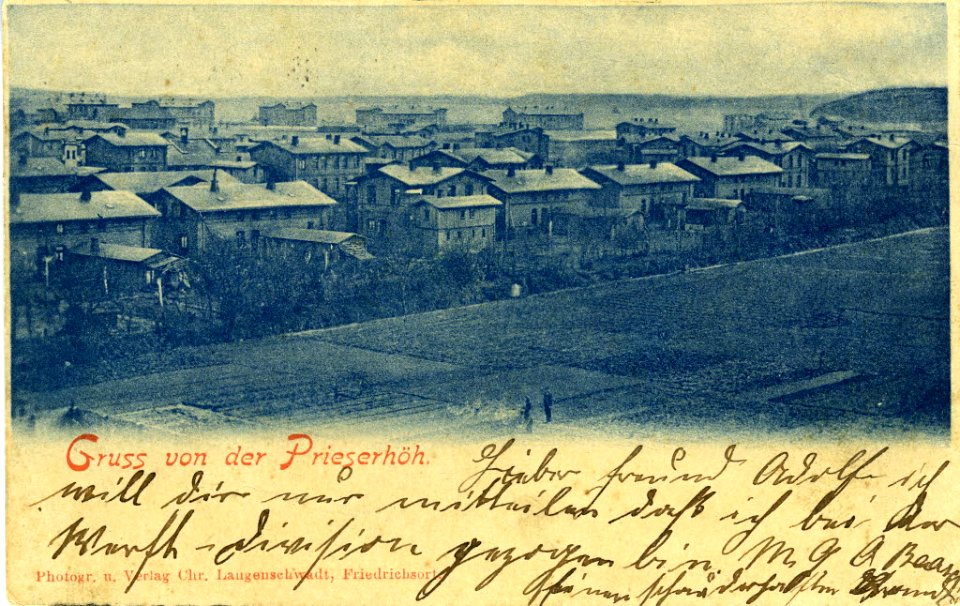 Gruss von der Prieserhöh.
Lieber freund Adolf ich
will dir nur mitteilen daß ich bei der
Werft-division gezogen bin. M G A
Photogr. u. Verlag Chr. Langenschwadt, Friedrichsort.
einen schauderhaften